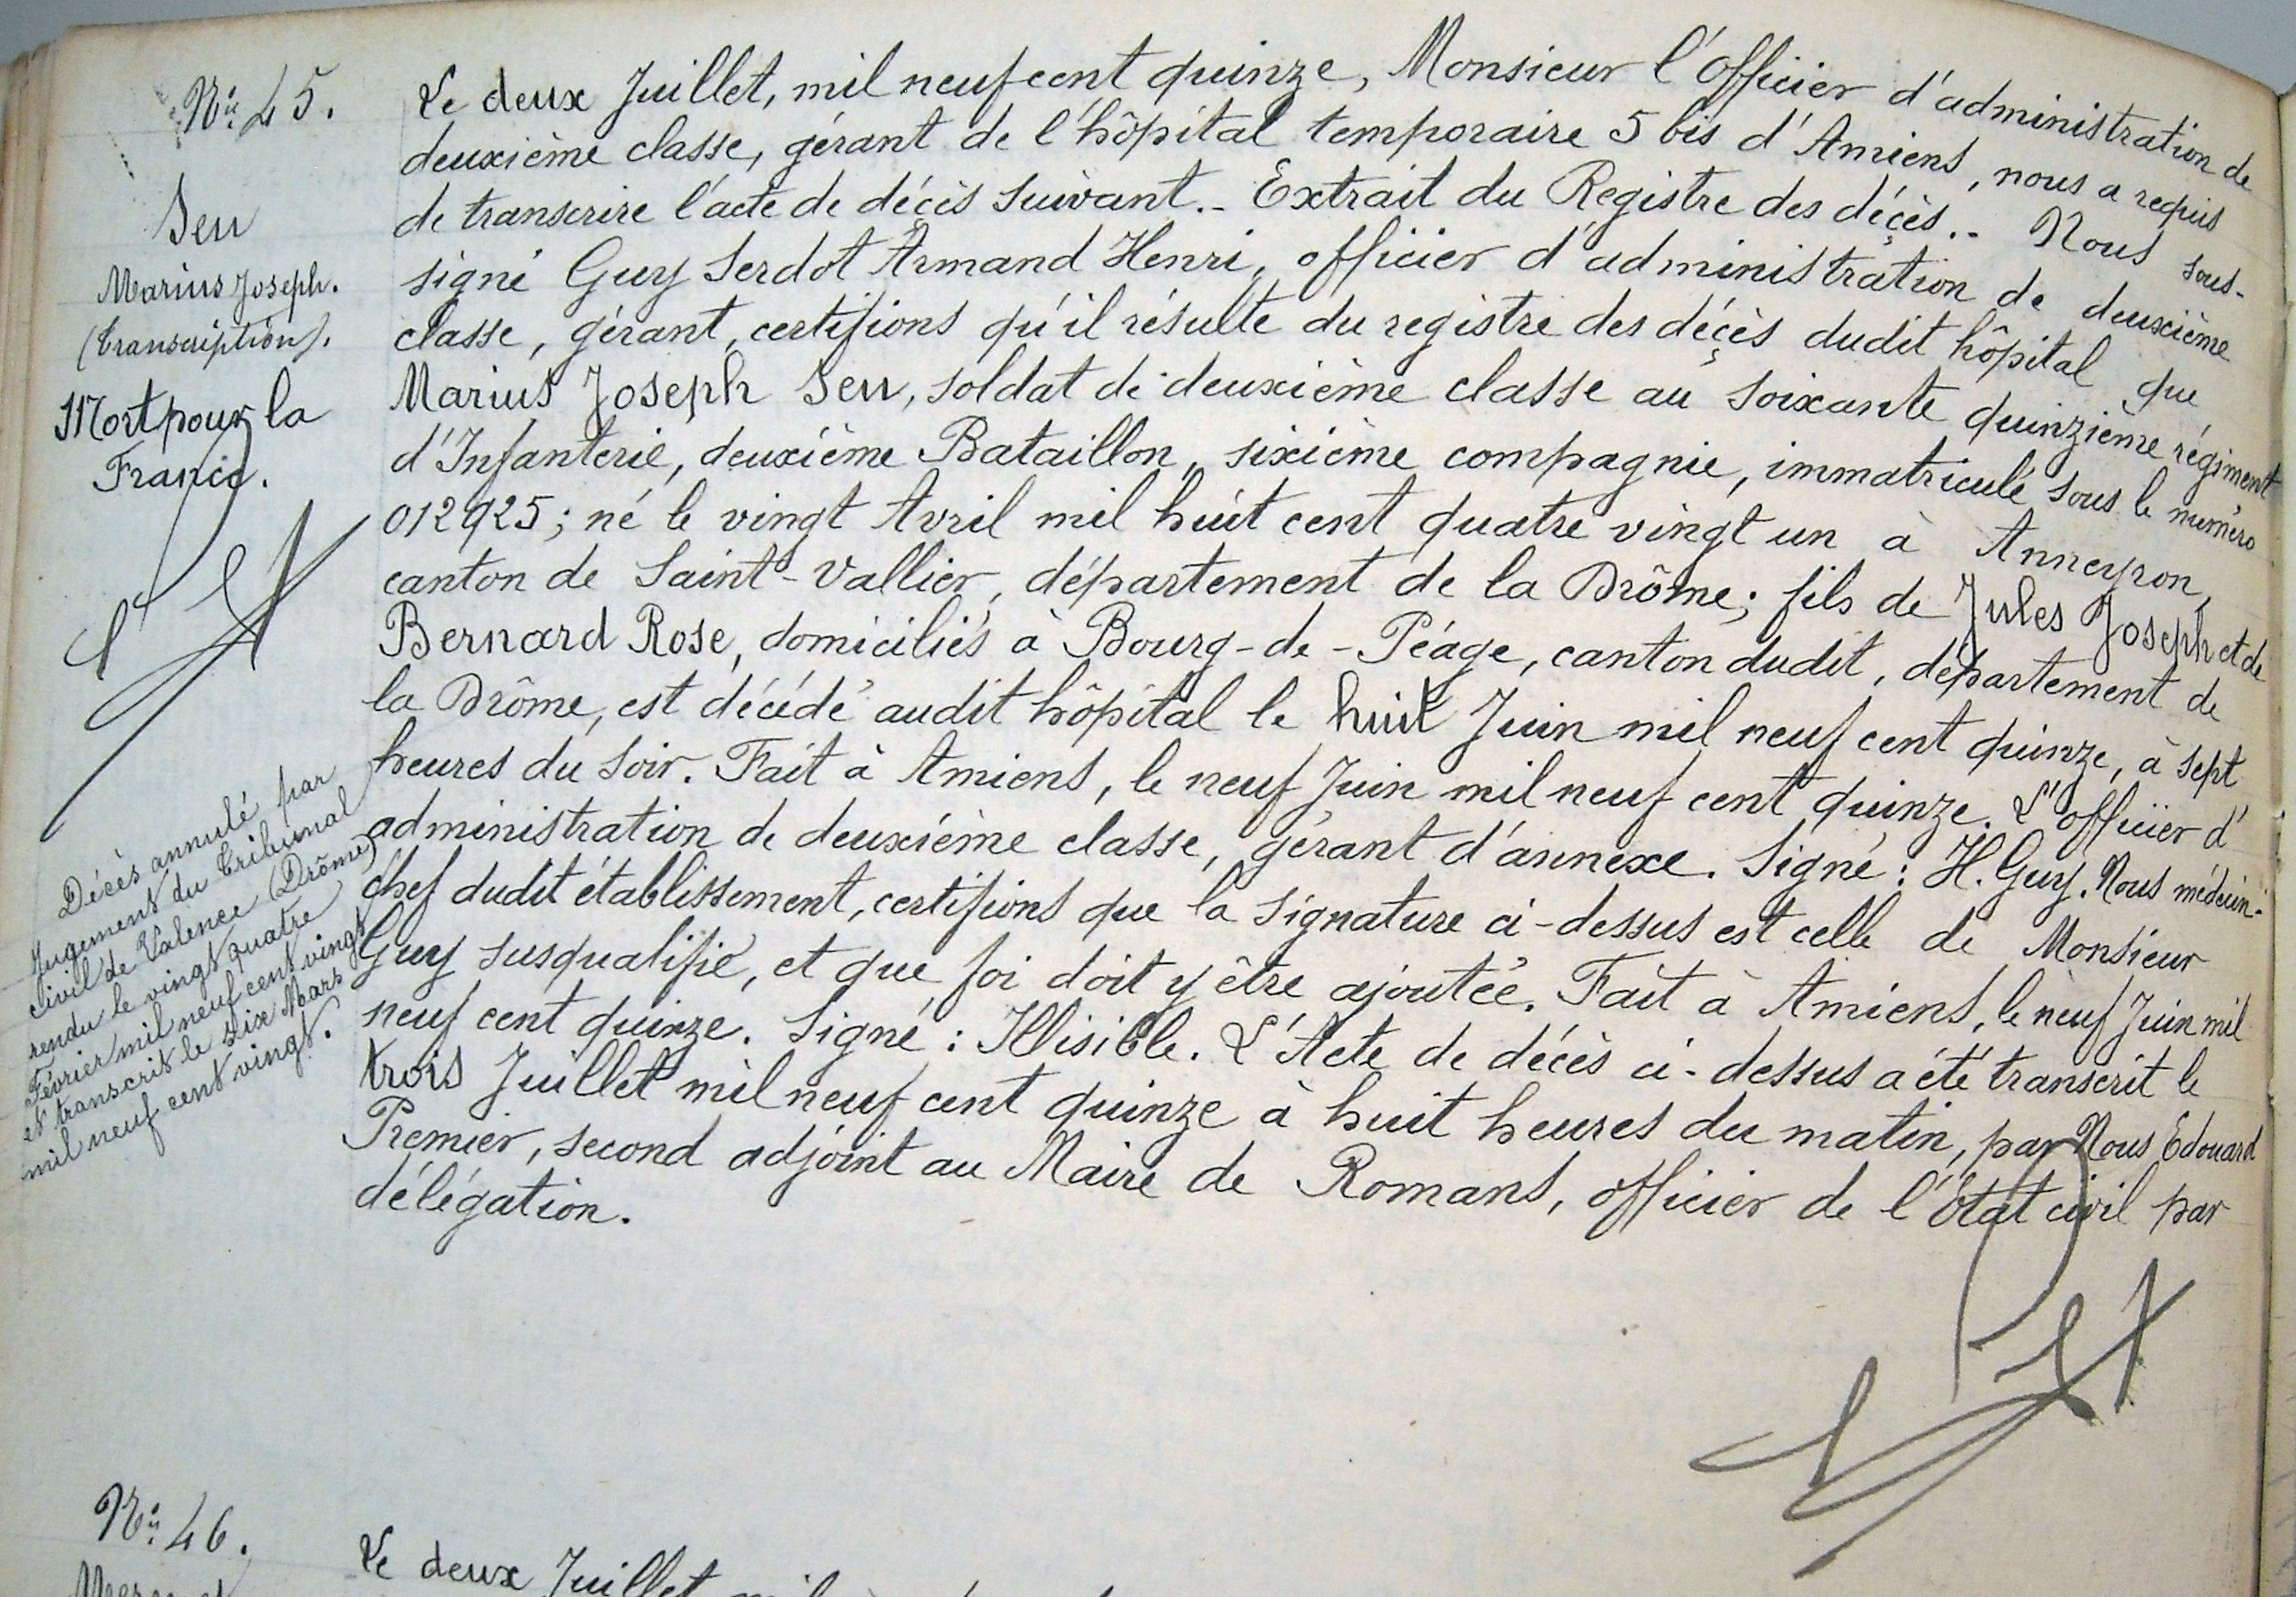 N° 45.
Seu
Marius Joseph.
(transcription).
Mort pour la
France.
Décès annulé par
Jugement du Tribunal
civil de Valence (Drôme)
rendu le vingt quatre
Février mil neuf cent vingt
et transcrit le six Mars
mil neuf cent vingt.
Le deux Juillet, mil neuf cent quinze, Monsieur l'Officier d'administration de
deuxième classe, gérant de l'hôpital temporaire 5 bis d'Amiens, nous a requis
de transcrire l'acte de décès suivant.- Extrait du Registre des décès.- Nous sous-
signé Guy Serdot Armand Henri, officier d'administration de deuxième
classe, gérant, certifions qu'il résulte du registre des décès dudit hôpital que
Marius Joseph Seu, soldat de deuxième classe au soixante quinzième régiment
d'Infanterie, deuxième Bataillon, sixième compagnie, immatriculé sous le numéro
012925; né le vingt Avril mil huit cent quatre vingt un à Anneyron,
canton de Saint-Vallier, département de la Drôme; fils de Jules Joseph et de
Bernard Rose, domiciliés à Bourg-de-Péage, canton dudit, département de
la Drôme, est décédé audit hôpital le huit Juin mil neuf cent quinze, à sept
heures du soir. Fait à Amiens, le neuf Juin mil neuf cent quinze. L'officier d'
administration de deuxième classe, gérant d'annexe. Signé: H. Guy. Nous médecin-
chef dudit établissement, certifions que la signature ci-dessus est celle de Monsieur
Guy susqualifié, et que foi doit y être ajoutée. Fait à Amiens, le neuf Juin mil
neuf cent quinze. Signé: Illisible. L'Acte de décès ci-dessus a été transcrit le
trois Juillet mil neuf cent quinze à huit heures du matin, par Nous Edouard
Premier, second adjoint au Maire de Romans, officier de l'état civil par
délégation.
N° 46.
Le deux Juillet